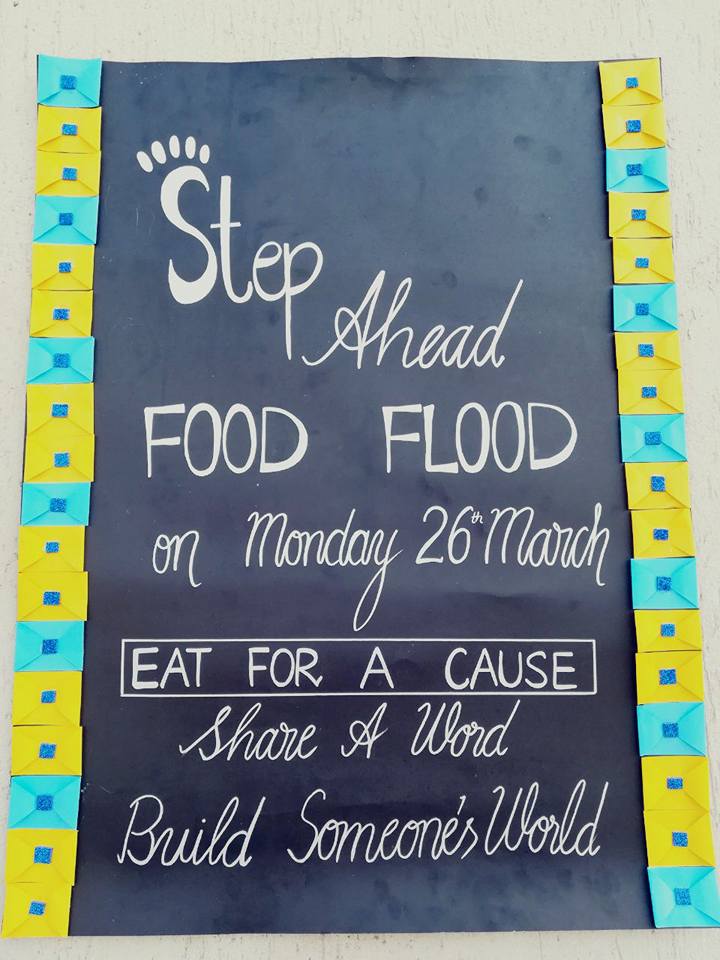 Step
Ahead
FOOD FLOOD
on Monday 26th March
EAT FOR A CAUSE
Share A Word
Build Someone's World